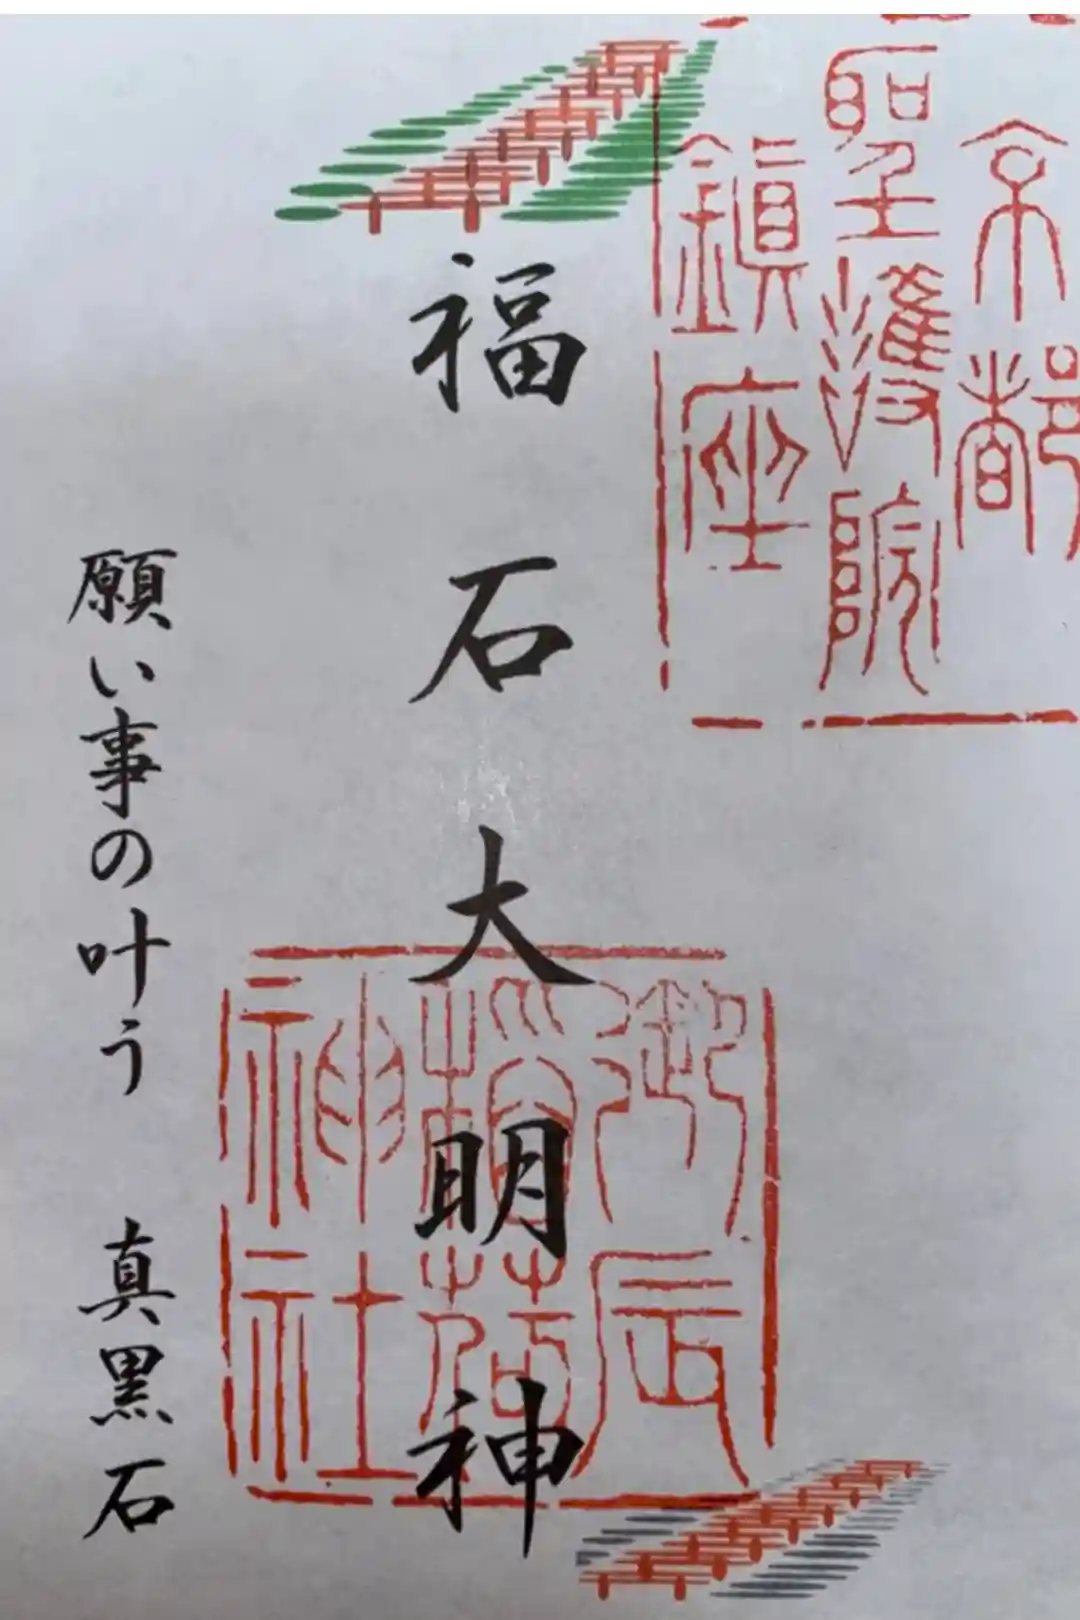 京都
聖護院
鎮座
福石大明神
御辰
稲荷
神社
願い事の叶う 真黒石